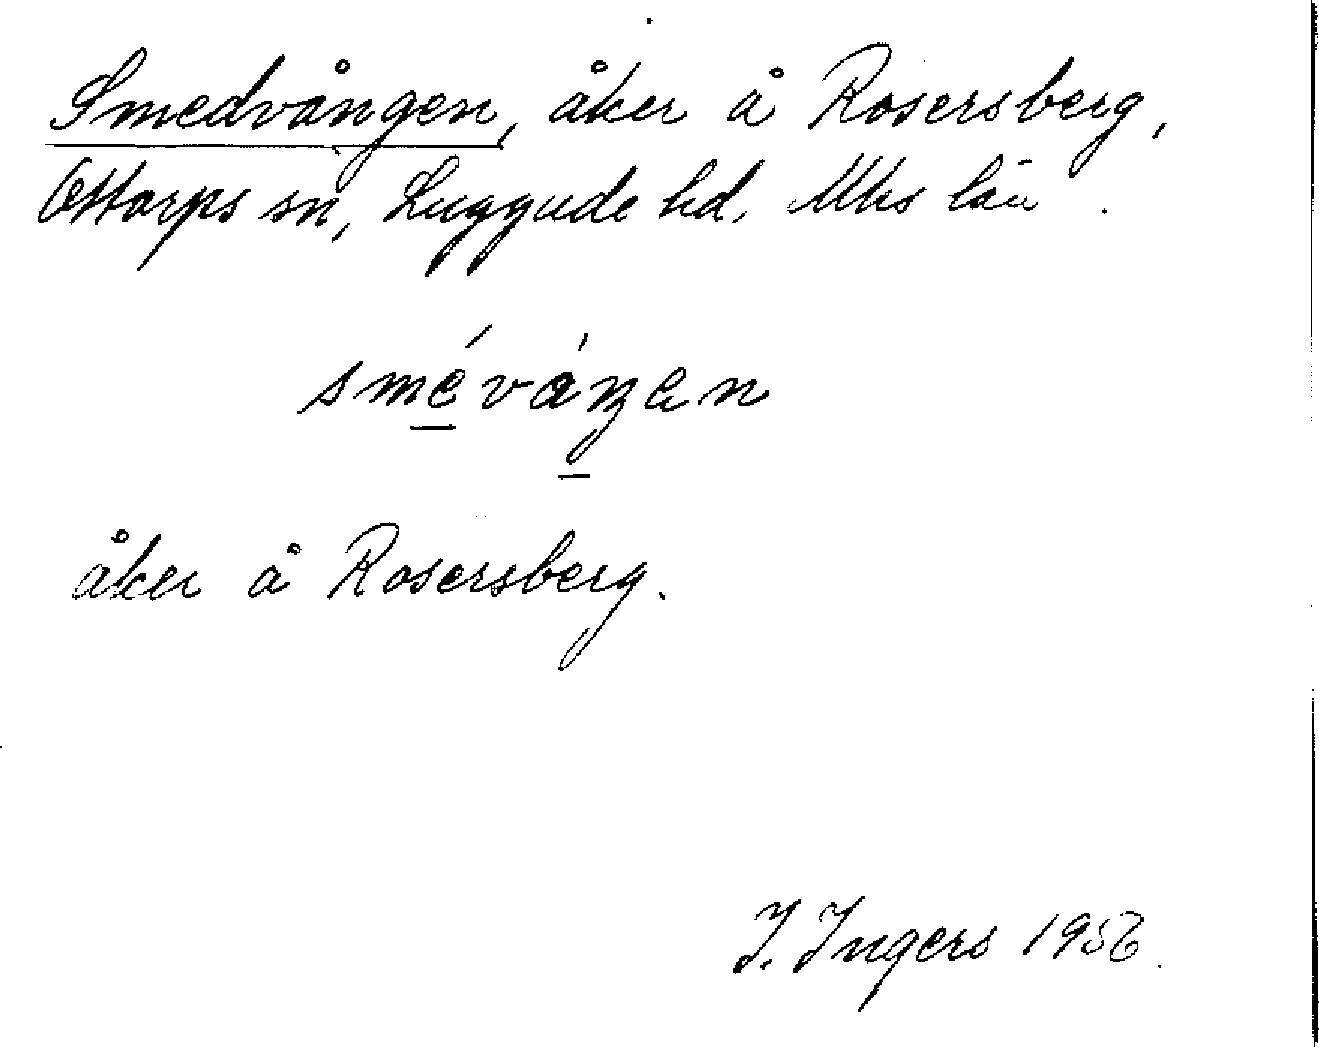 Smedvången, åker å Rosersberg,
Ottarps sn, Luggude hd, Mhs län.
sméváŋen
åker å Rosersberg.
I. Ingers 1956.